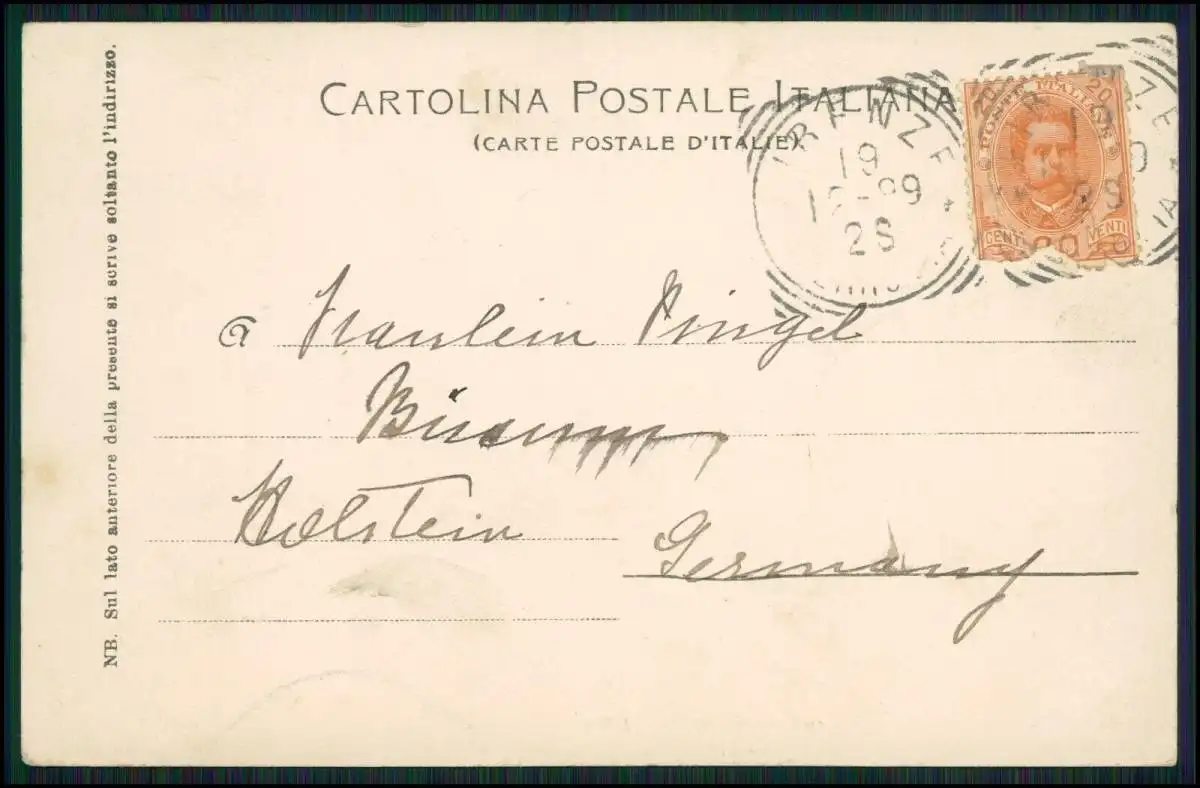 CARTOLINA POSTALE ITALIANA
(CARTE POSTALE D'ITALIE)
FIRENZE
19
12-99
2S
20 POSTE ITALIANE 20
CENT. 20 VENTI
a Fräulein Pingel
Büsum
Holstein
Germany
NB. Sul lato anteriore della presente si scrive soltanto l'indirizzo.